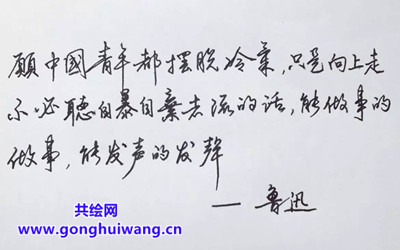 願中國青年都摆脱冷氣,只是向上走
不必聽自暴自棄者流的话,能做事的
做事,能发声的发聲
— 鲁迅
共绘网
www.gonghuiwang.cn